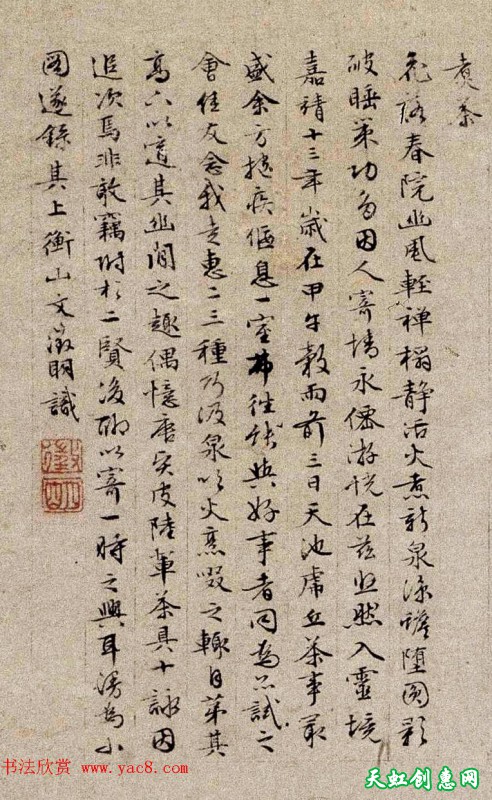 煮茶
花落春院幽風輕禅榻静活火煮新泉涼蟾堕圓影
破睡策功多因人寄情永僊游恍在兹悠然入靈境
嘉靖十三年歲在甲午穀雨前三日天池虎丘茶事最
盛余方抱疾偃息一室弗往能與好事者同為品試之
會佳友念我走惠二三種乃汲泉以火烹啜之輒自第其
高下以適其幽閒之趣偶憶唐賢皮陸輩茶具十詠因
追次焉非敢竊附於二賢後聊以寄一時之興耳漫為小
圖遂錄其上衡山文徵明識
书法欣赏 www.yac8.com
天虹创惠网